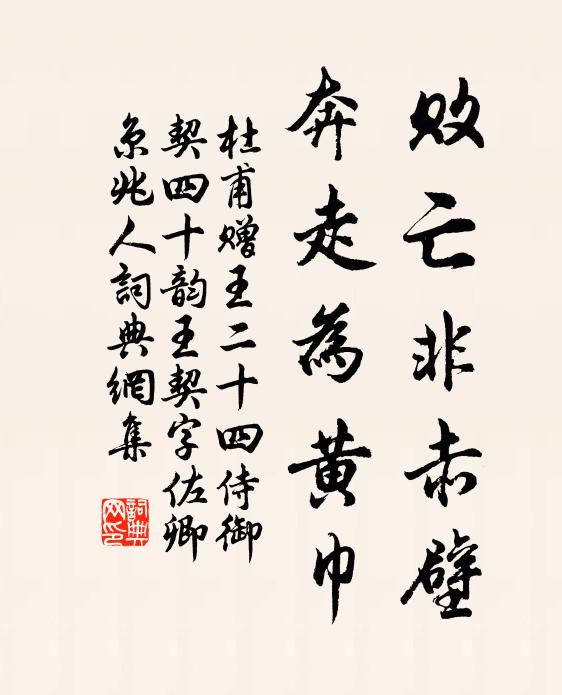 败亡非赤壁
奔走為黄巾
杜甫赠王二十四侍御
契四十韵王契字佐卿
京兆人詞典網集
詞典
网印